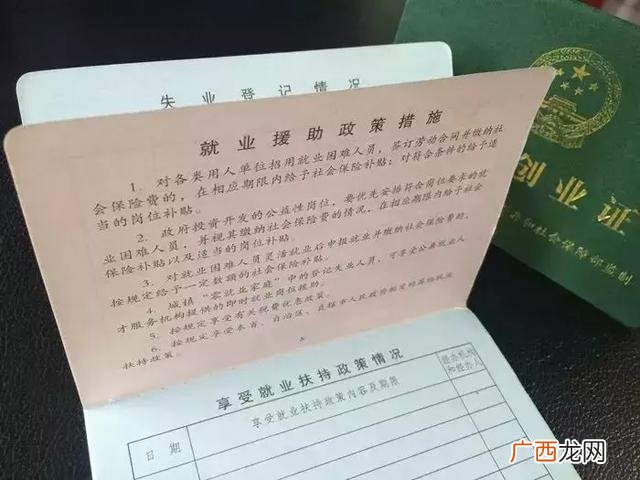 失业登记情况
就业援助政策措施
1. 对各类用人单位招用就业困难人员，签订劳动合同并缴纳社
会保险费的，在相应期限内给予社会保险补贴；对符合条件的给予适
当的岗位补贴。
2. 政府投资开发的公益性岗位，要优先安排符合岗位要求的就
业困难人员，并视其缴纳社会保险费的情况，在相应期限内给予社会
保险补贴以及适当的岗位补贴。
3. 对就业困难人员灵活就业后申报就业并缴纳社会保险费的，
按规定给予一定数额的社会保险补贴。
4. 城镇“零就业家庭”中的登记失业人员，可享受公共就业人
才服务机构提供的即时就业岗位援助。
5. 按规定享受有关税费优惠政策。
6. 按规定享受本省、自治区、直辖市人民政府制定的其他就业
扶持政策。
享受就业扶持政策情况
日期
享受就业扶持政策内容及期限
经办机构
和经办人
创业证
和社会保障部监制
广西龙网